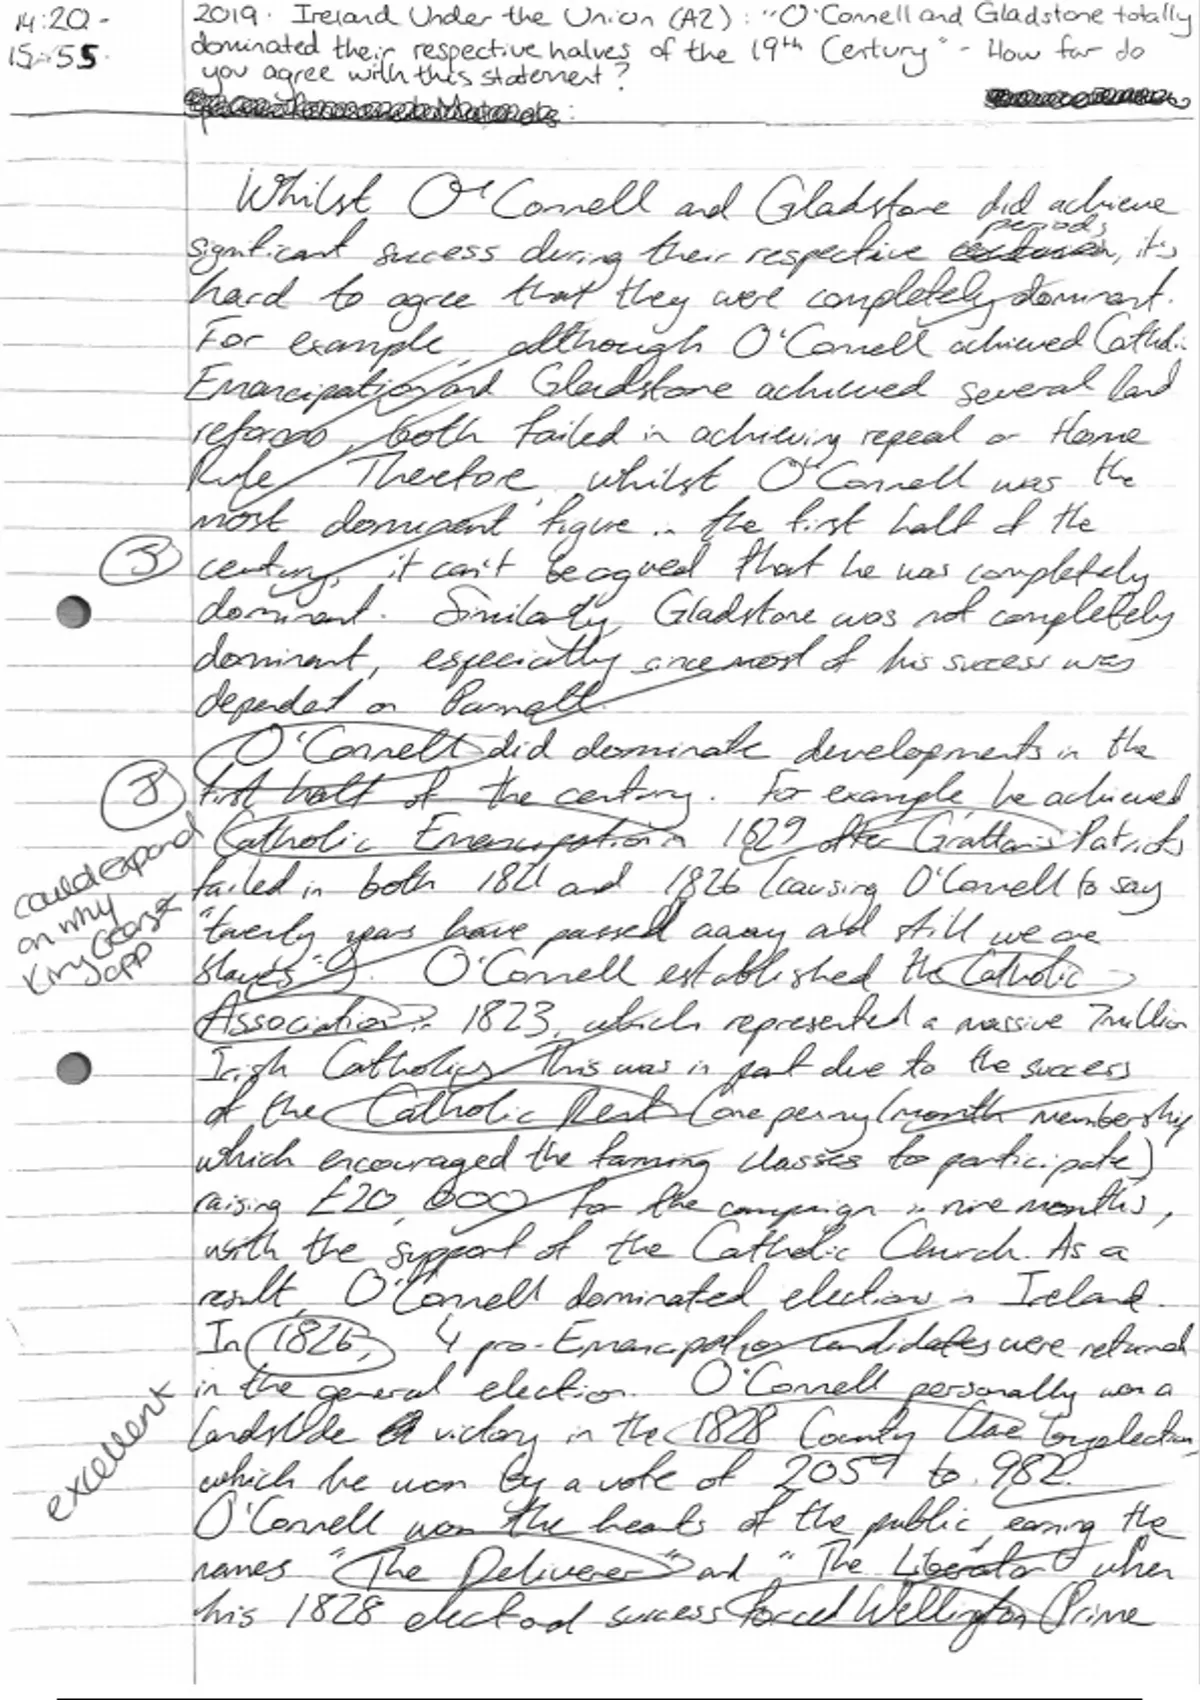 14:20 -
15:55.
2019. Ireland Under the Union (A2): "O'Connell and Gladstone totally
dominated their respective halves of the 19th Century" - How far do
you agree with this statement?
Whilst O'Connell and Gladstone did achieve
periods
significant success during their respective, it's
hard to agree that they were completely dominant.
For example, although O'Connell achieved Catholic
Emancipation and Gladstone achieved several land
reforms, both failed in achieving repeal or Home
Rule. Therefore, whilst O'Connell was the
most dominant figure in the first half of the
century, it can't be agreed that he was completely
dominant. Similarly, Gladstone was not completely
dominant, especially since most of his success was
dependent on Parnell.
O'Connell did dominate developments in the
first half of the century. For example, he achieved
Catholic Emancipation in 1829 after Grattan's Patriots
failed in both 1821 and 1826 (causing O'Connell to say
could expand
on why
King George
opp
"twenty years have passed away and still we are
slaves"). O'Connell established the Catholic
Association in 1823, which represented a massive 7million
Irish Catholics. This was in part due to the success
of the Catholic Rent (one penny/month membership
which encouraged the farming classes to participate)
raising £20,000 for the campaign in nine months,
with the support of the Catholic Church. As a
result, O'Connell dominated elections in Ireland.
In 1826, 4 pro-Emancipation candidates were returned
in the general election. O'Connell personally won a
excellent
landslide victory in the 1828 County Clare byelection,
which he won by a vote of 2057 to 982.
O'Connell won the hearts of the public, earning the
names "The Deliverer" and "The Liberator" when
his 1828 electoral success forced Wellington (Prime